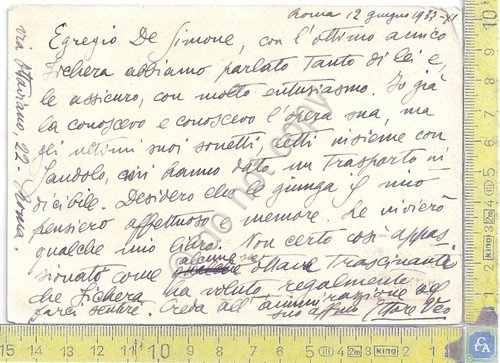 Roma 12 giugno 1933-XI
Egregio De Simone, con l'ottimo amico
Fichera abbiamo parlato tanto di lei e,
le assicuro, con molto entusiasmo. Io già
la conoscevo e conoscevo l'opera sua, ma
gli ultimi suoi sonetti, letti insieme con
Sandolo, mi hanno dato un trasporto in
dicibile. Desidero che le giunga il mio
pensiero affettuoso, memore. Le invierò
qualche mio libro. Non certo così appas
sionato come alcune sue ottave trascinanti
che Fichera ha voluto regalmente
farci sentire. Creda all'ammirazione del
suo aff.mo
via Ottaviano, 22 - Roma.
do not copy
15 14 13 12 11 10 9 8 7 6 5 4 3 2 1
10 9 8 7 6 5 4 3 2 1
king